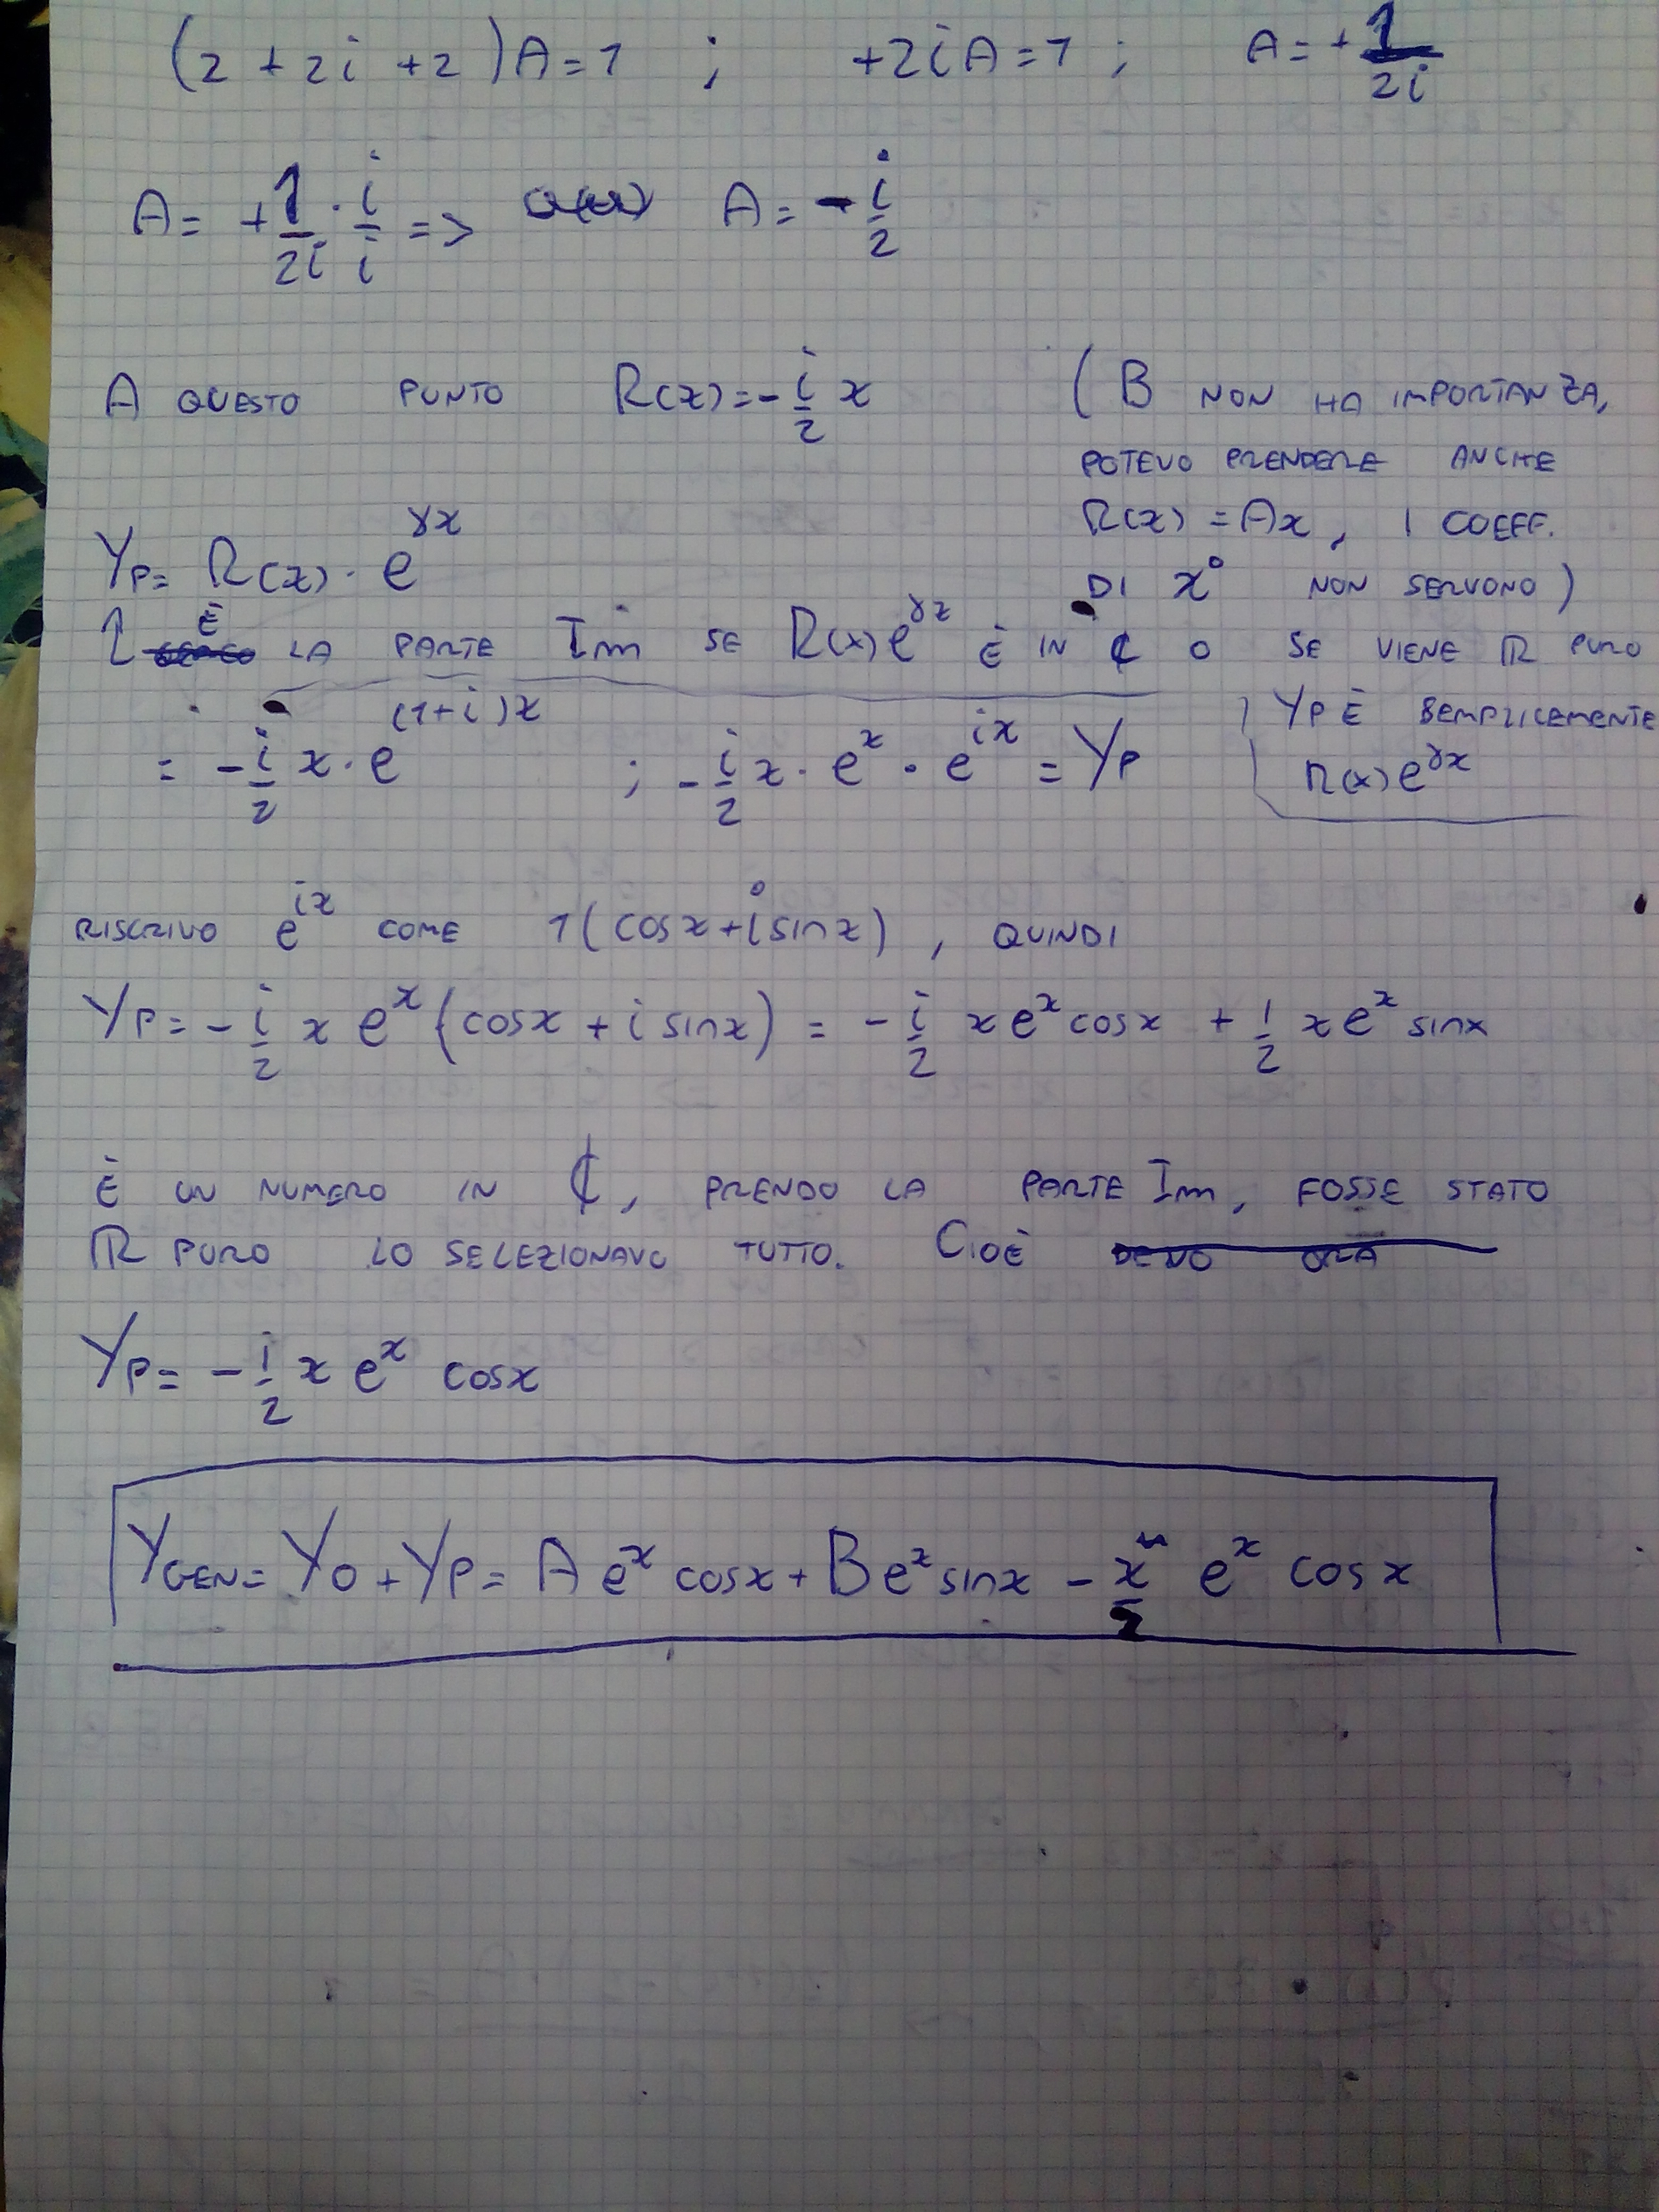 (2 + 2i + 2)A = 1 ; +2iA = 1 ; A = + 1/2i
A = + 1/2i · i/i => A = - i/2
A QUESTO PUNTO R(x) = - i/2 x (B NON HA IMPORTANZA,
POTEVO PRENDERE ANCHE
R(x) = Ax, I COEFF.
DI x⁰ NON SERVONO)
Yp = R(x) · e^γx
È LA PARTE Im SE R(x)e^γx È IN ₵ O SE VIENE ℝ PURO
YP È SEMPLICEMENTE
R(x)e^γx
= - i/2 x · e^(1+i)x ; - i/2 x · e^x · e^ix = Yp
RISCRIVO e^ix COME 1(cosx + i sinx), QUINDI
Yp = - i/2 x e^x (cosx + i sinx) = - i/2 x e^x cosx + 1/2 x e^x sinx
È UN NUMERO IN ₵, PRENDO LA PARTE Im, FOSSE STATO
ℝ PURO LO SELEZIONAVO TUTTO. CIOÈ DEVO ORA
Yp = - i/2 x e^x cosx
YGEN = Yo + Yp = A e^x cosx + B e^x sinx - x/2 e^x cosx